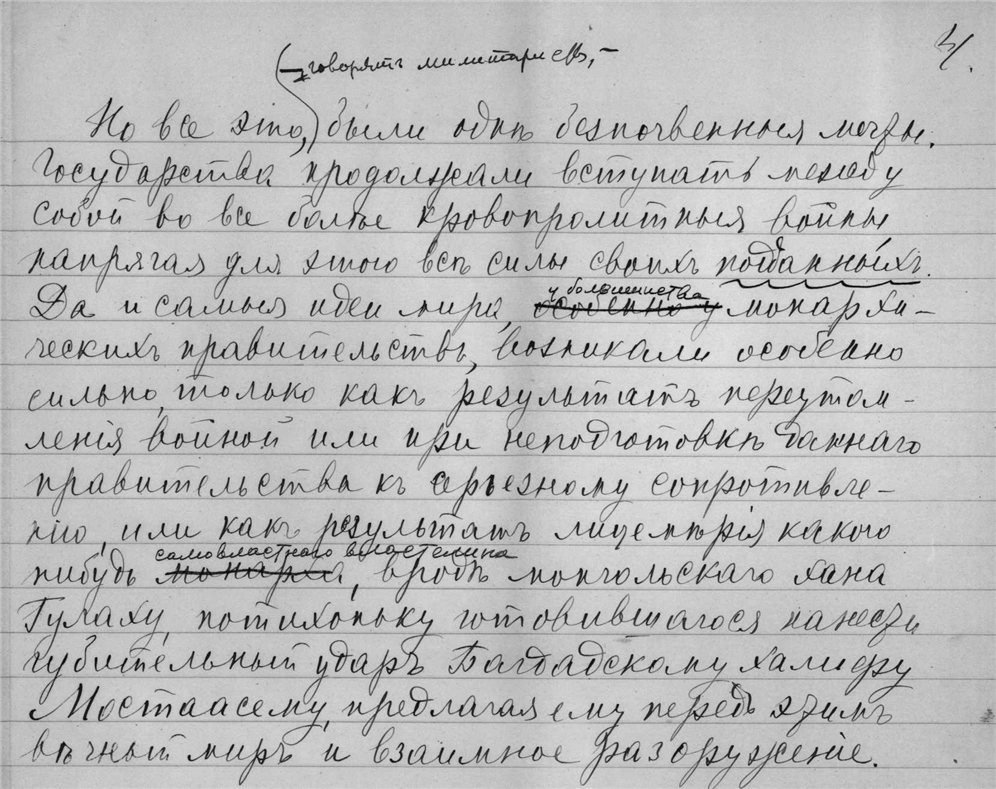 4.
– говорятъ милитаристы, –
Но все это, были однѣ безпочвенныя мечты.
Государства продолжали вступать между
собой во все болѣе кровопролитныя войны
напрягая для этого всѣ силы своихъ подданныхъ.
у большинства
Да и самыя идеи мира, особенно у монархи-
ческихъ правительствъ, возникали особенно
сильно, только какъ результатъ переутом-
ленія войной или при неподготовкѣ даннаго
правительства къ серьезному сопротивле-
нію, или какъ результатъ лицемѣрія какого
самовластнаго властелина
нибудь монарха, вродѣ монгольскаго хана
Гулаху, потихоньку готовившагося нанести
губительный ударъ Багдадскому халифу
Мостаасему, предлагая ему передъ этимъ
вѣчный миръ и взаимное разоруженіе.